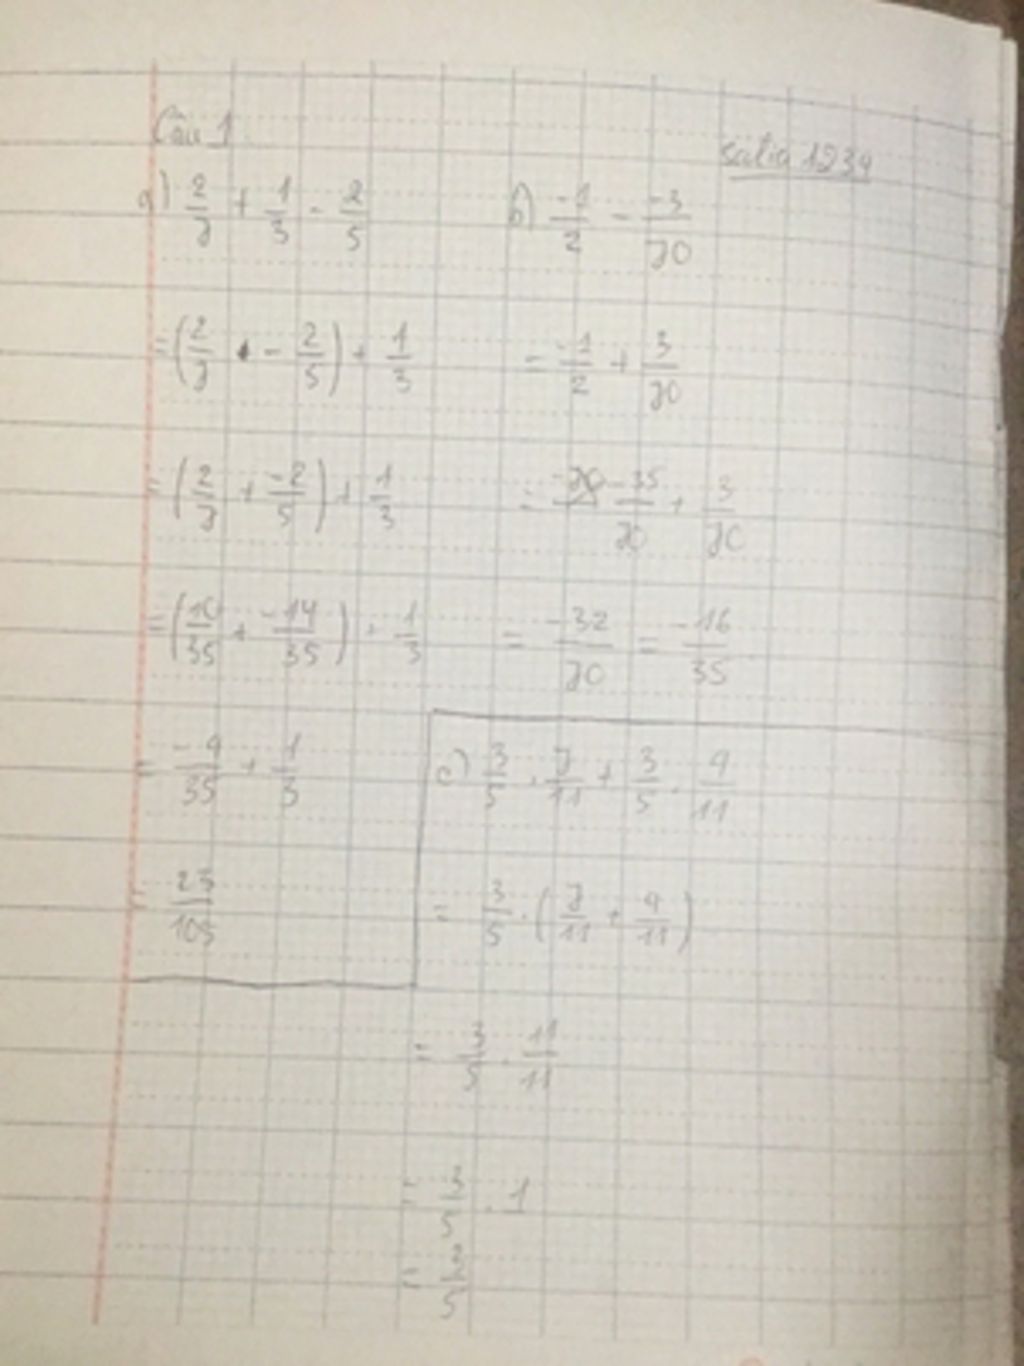 Câu 1
satio 1234
a) 2/7 + 1/3 - 2/5
= (2/7 - 2/5) + 1/3
= (2/7 + -2/5) + 1/3
= (10/35 + -14/35) + 1/3
= -4/35 + 1/3
= 23/105
b) -1/2 - -3/70
= -1/2 + 3/70
= -35/70 + 3/70
= -32/70 = -16/35
c) 3/5 . 7/11 + 3/5 . 4/11
= 3/5 . (7/11 + 4/11)
= 3/5 . 11/11
= 3/5 . 1
= 3/5